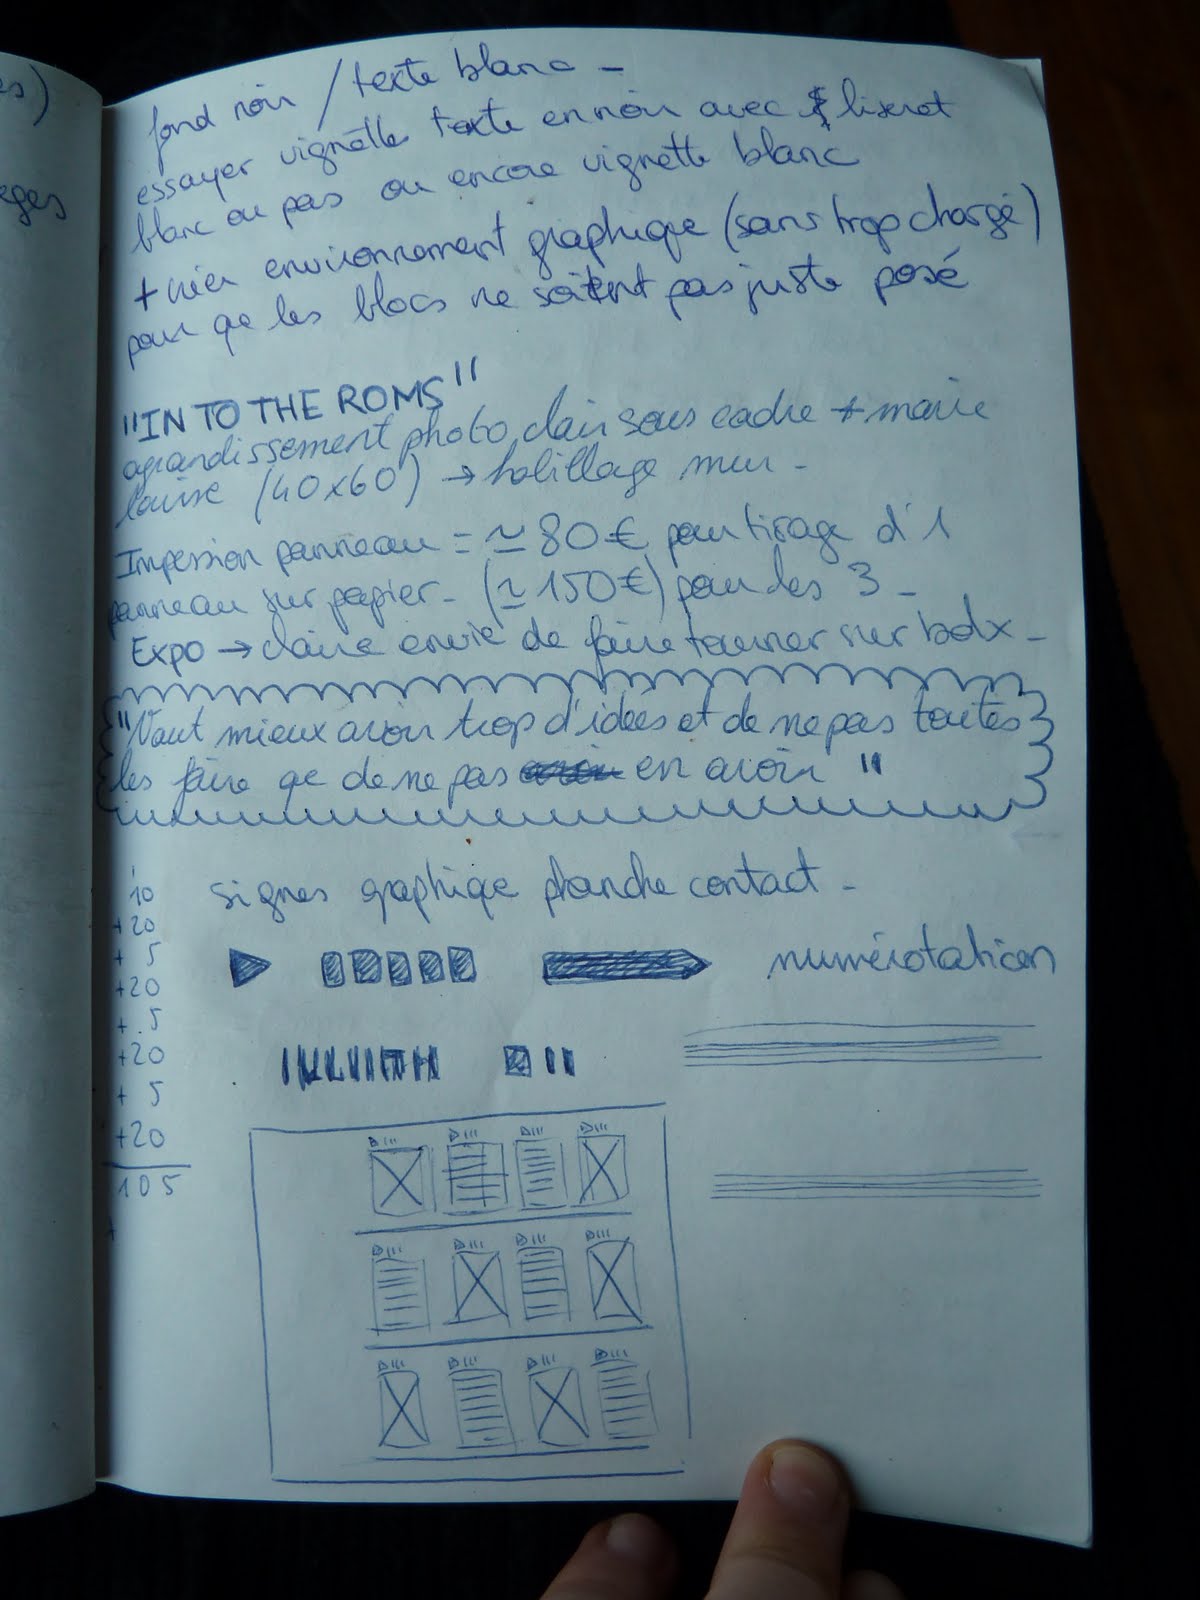 es)
eges
fond noir / texte blanc -
essayer vignette texte en noir avec liseret
blanc ou pas ou encore vignette blanc
+ créer environnement graphique (sans trop chargé)
pour qe les blocs ne soient pas juste posé
"IN TO THE ROMS"
agrandissement photo, clair sous cadre + marie
louise (40x60) → habillage mur -
Impression panneau = ≃ 80€ pour tirage d'1
panneau sur papier - (≃ 150€) pour les 3 -
Expo → claire envie de faire tourner sur bdx -
"Vaut mieux avoir trop d'idées et de ne pas toutes
les faire qe de ne pas en avoir"
signes graphique planche contact -
numérotation
10
+20
+ 5
+20
+ 5
+20
+ 5
+20
105
+